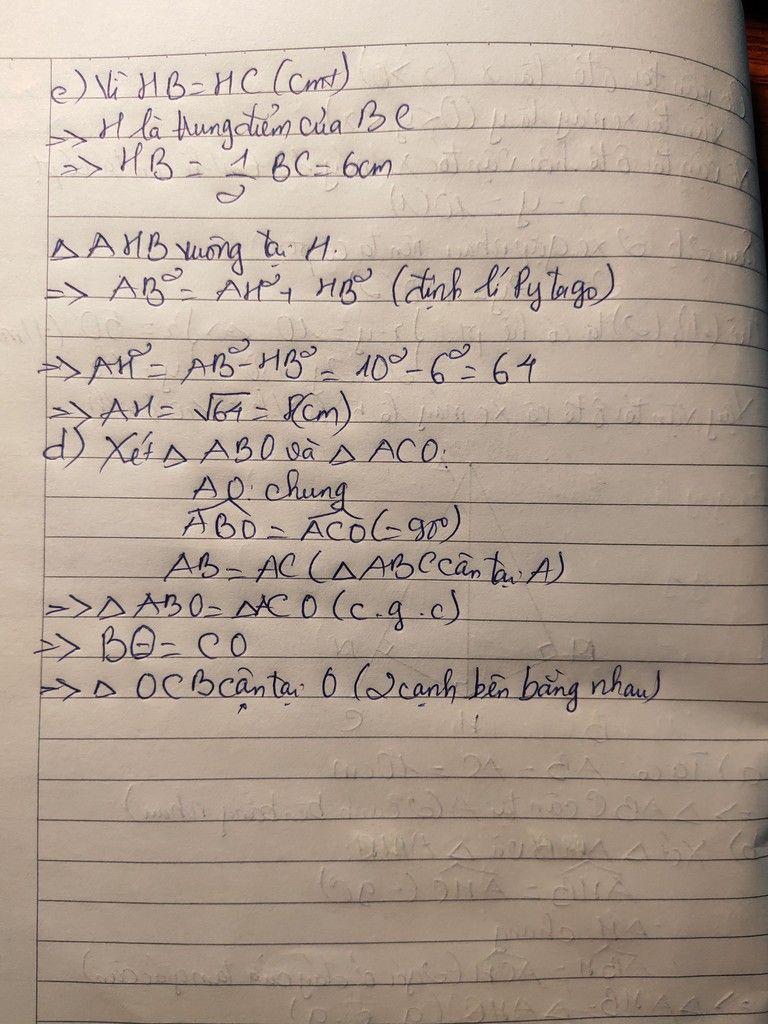 c) Vì HB = HC (cmt)
=> H là trung điểm của BC
=> HB = 1/2 BC = 6cm
△ AHB vuông tại H.
=> AB² = AH² + HB² (định lí Pytago)
=> AH² = AB² - HB² = 10² - 6² = 64
=> AH = √64 = 8(cm)
d) Xét △ ABO và △ ACO:
AO: chung
ABO = ACO (= 90°)
AB = AC (△ABC cân tại A)
=> △ ABO = △ACO (c.g.c)
=> BO = CO
=> △ OCB cân tại O (2 cạnh bên bằng nhau)